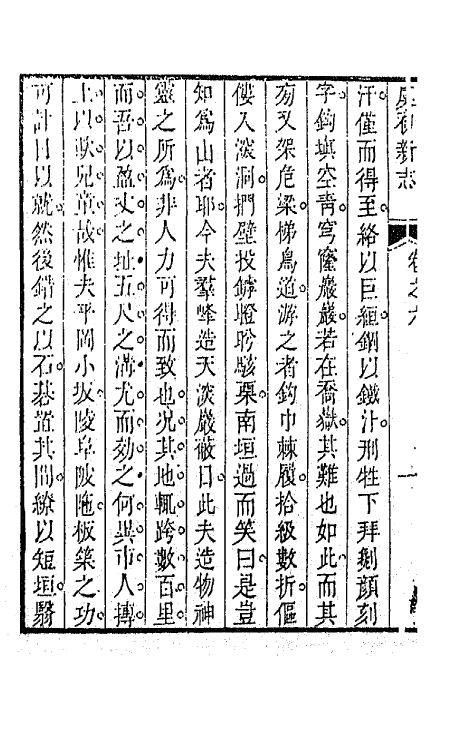 虞初新志 卷之六 一
汗僅而得至絡以巨絙錮以鐵汁刑牲下拜劖顏刻
字鉤塡空靑穹窿巖巖若在喬嶽其難也如此而其
旁又架危梁梯鳥道游之者鉤巾棘履拾級數折傴
僂入深洞捫壁投罅瞪盻駭栗南垣過而笑曰是豈
知爲山者耶今夫羣峰造天深巖蔽日此夫造物神
靈之所爲非人力可得而致也况其地輒跨數百里
而吾以盈丈之址五尺之溝尤而効之何異市人摶
土以欺兒童哉惟夫平岡小坂陵阜陂陁板築之功
可計日以就然後錯之以石棊置其間繚以短垣翳